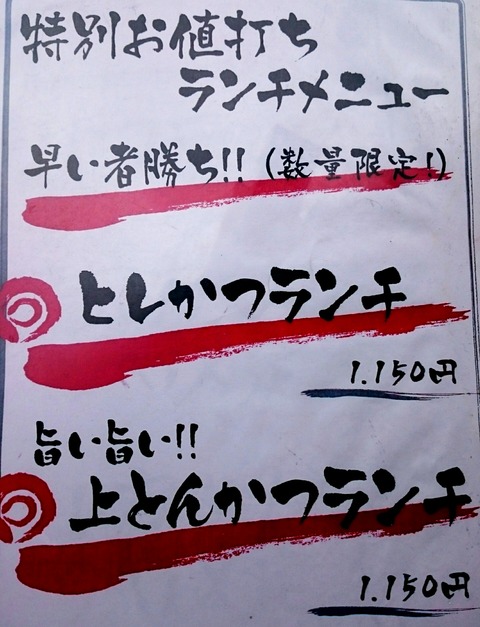 特別お値打ち
ランチメニュー
早い者勝ち!!(数量限定!)
としかつランチ
1.150円
旨い旨い!!
上とんかつランチ
1.150円